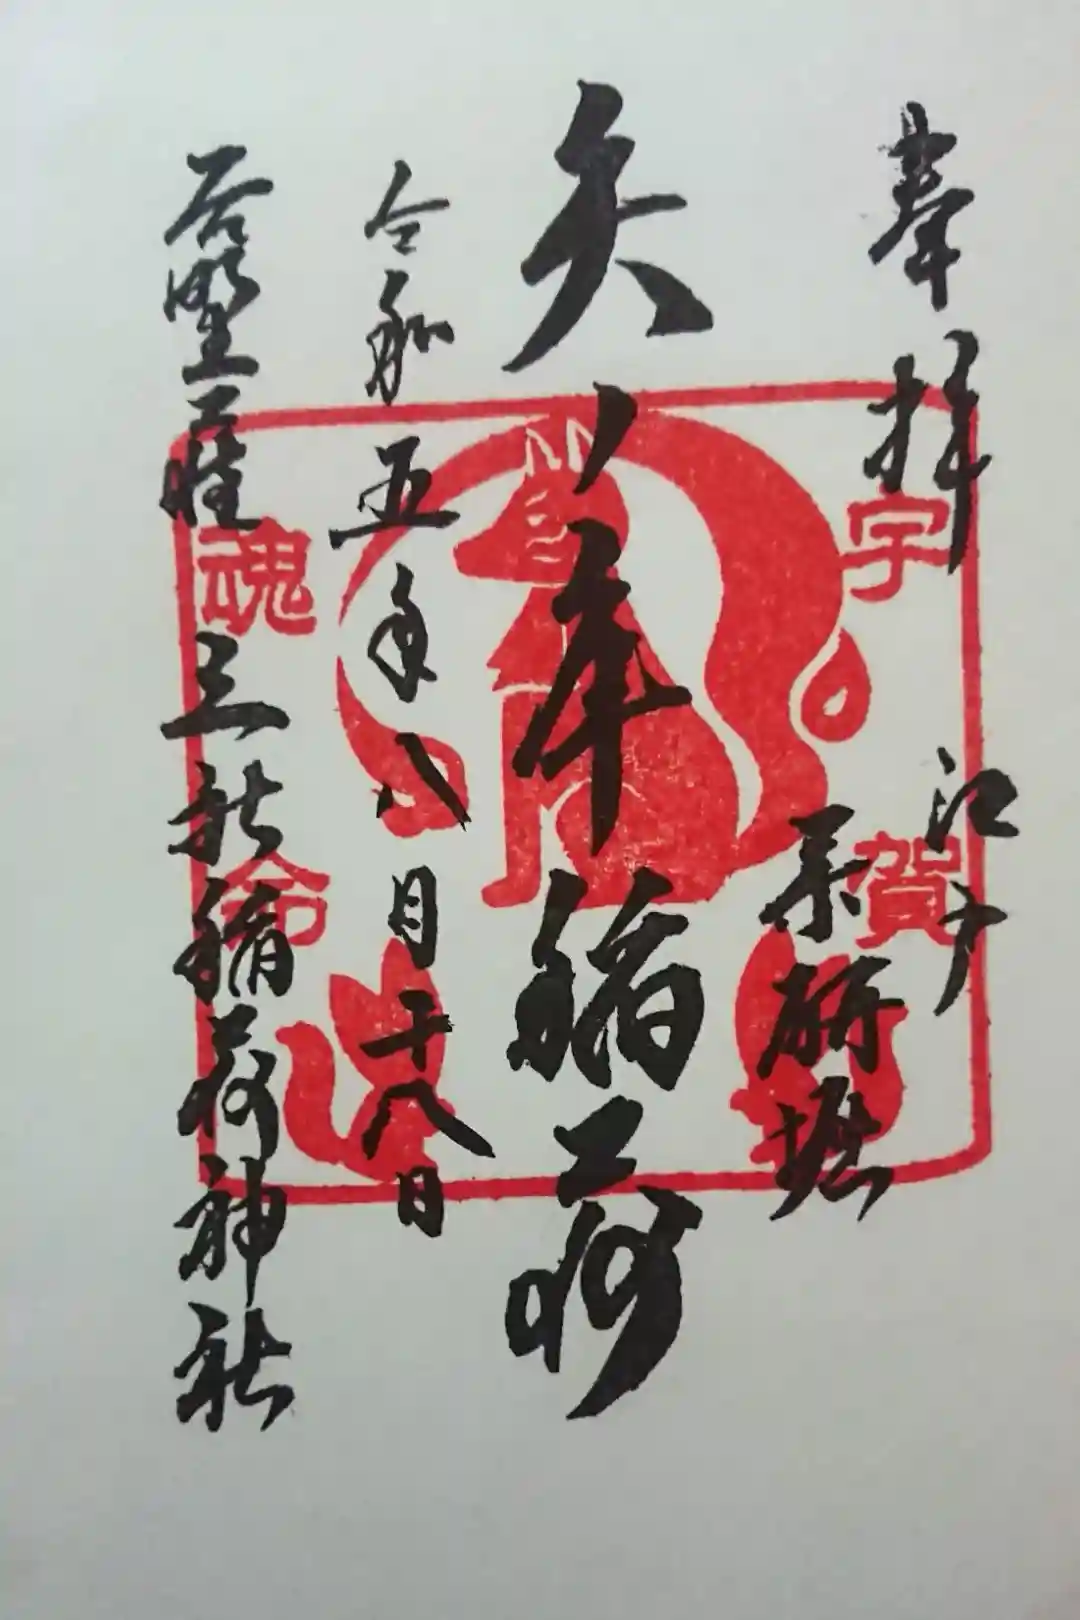 奉拝
江戸
薬研堀
矢ノ庫稲荷
令和五年八月十八日
三社稲荷神社
宇賀
魂命